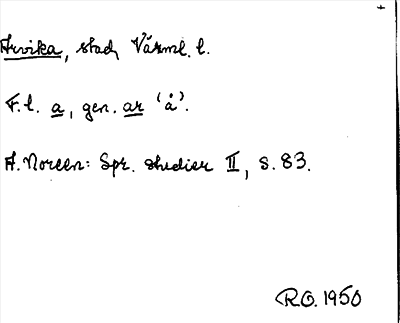 Arvika, stad, Värml. l.
F.l. a, gen. ar 'å'.
A. Noreen: Spr. studier II, s. 83.
R.O. 1950